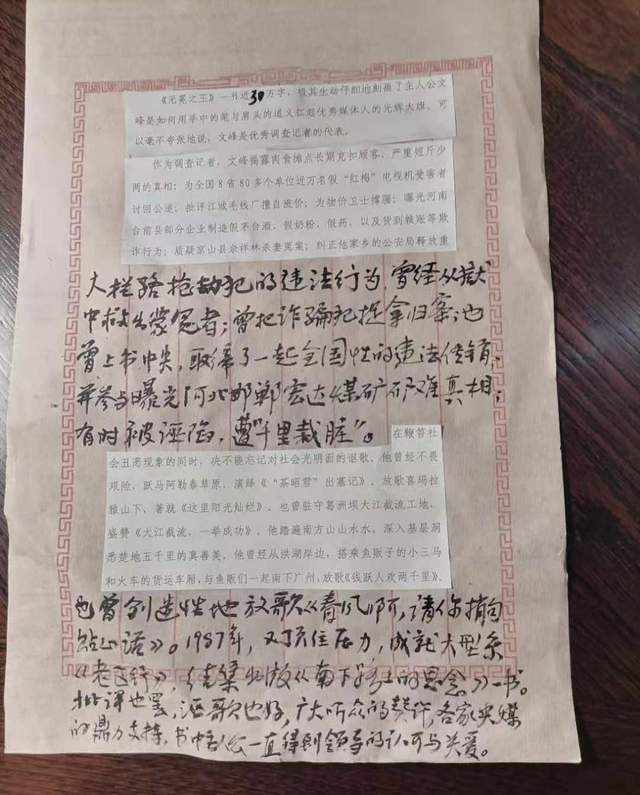 《无冕之王》一书近30万字，极其生动仔细地刻画了主人公文
峰是如何用手中的笔与肩头的道义扛起优秀媒体人的光辉大雄。可
以毫不夸张地说，文峰是优秀调查记者的代表。
作为调查记者，文峰揭露肉食摊点长期克扣顾客，严重短斤少
两的真相；为全国8省80多个单位近万名假“红梅”电视机受害者
讨回公道；批评江城毛线厂擅自涨价；为物价卫士撑腰；曝光河南
台前县部分企业制造假茅台酒、假奶粉、假药，以及货到赖账等欺
诈行为；质疑京山县佘祥林杀妻冤案；纠正他家乡的公安局释放重
大拦路抢劫犯的违法行为，曾经从狱
中救出蒙冤者；曾把诈骗犯捉拿归案；也
曾上书中央，取缔了一起全国性的违法传销，
并参与曝光河北邯郸宏达煤矿矿难真相；
有时被诬陷，遭“千里栽脏”。
在鞭笞社
会丑恶现象的同时，决不能忘记对社会光明面的讴歌。他曾经不畏
艰险，跃马阿勒泰草原，演绎《“茶昭君”出塞记》，放歌喜玛拉
雅山下，著就《这里阳光灿烂》。也曾驻守葛洲坝大江截流工地，
盛赞《大江截流，一举成功》。他踏遍南方山山水水，深入基层洞
悉楚地五千里的真善美。他曾经从洪湖岸边，搭乘鱼贩子的小三马
和火车的货运车厢，与鱼贩们一起南下广州，放歌《钱跃人欢两千里》。
也曾创造性地放歌《春风啊，请你捎句
贴心话》。1987年，又顶住压力，成就大型系
《老区行》，结集出版《南下路上的思念》一书。
批评也罢，讴歌也好，广大听众的赞许，各家央媒
的鼎力支持，书中主人公一直得到领导的认可与关爱。